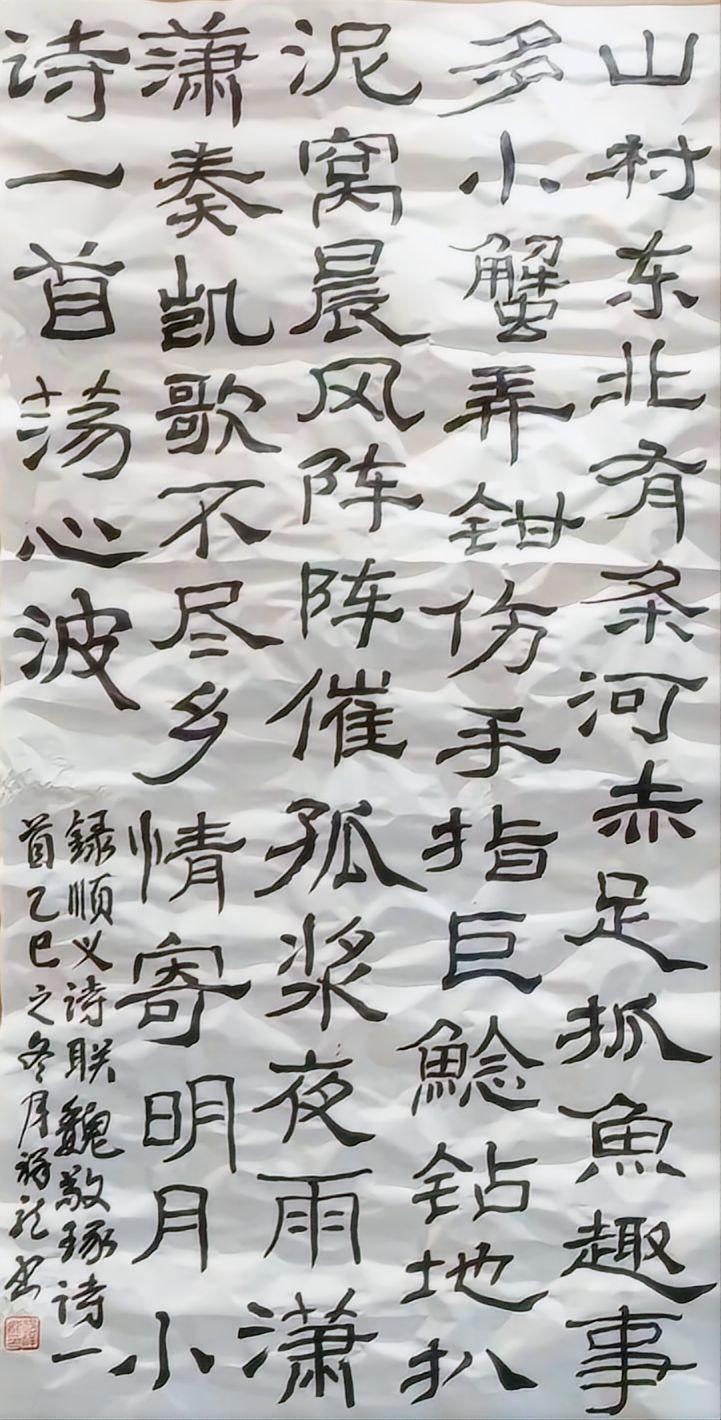 山村东北有条河赤足抓魚趣事
多小蟹弄钳伤手指巨鯰钻地扒
泥窝晨风阵阵催孤桨夜雨潇
潇奏凯歌不尽乡情寄明月小
诗一首荡心波
録顺义诗联魏敬琢诗一
首乙巳之冬月祥龙书